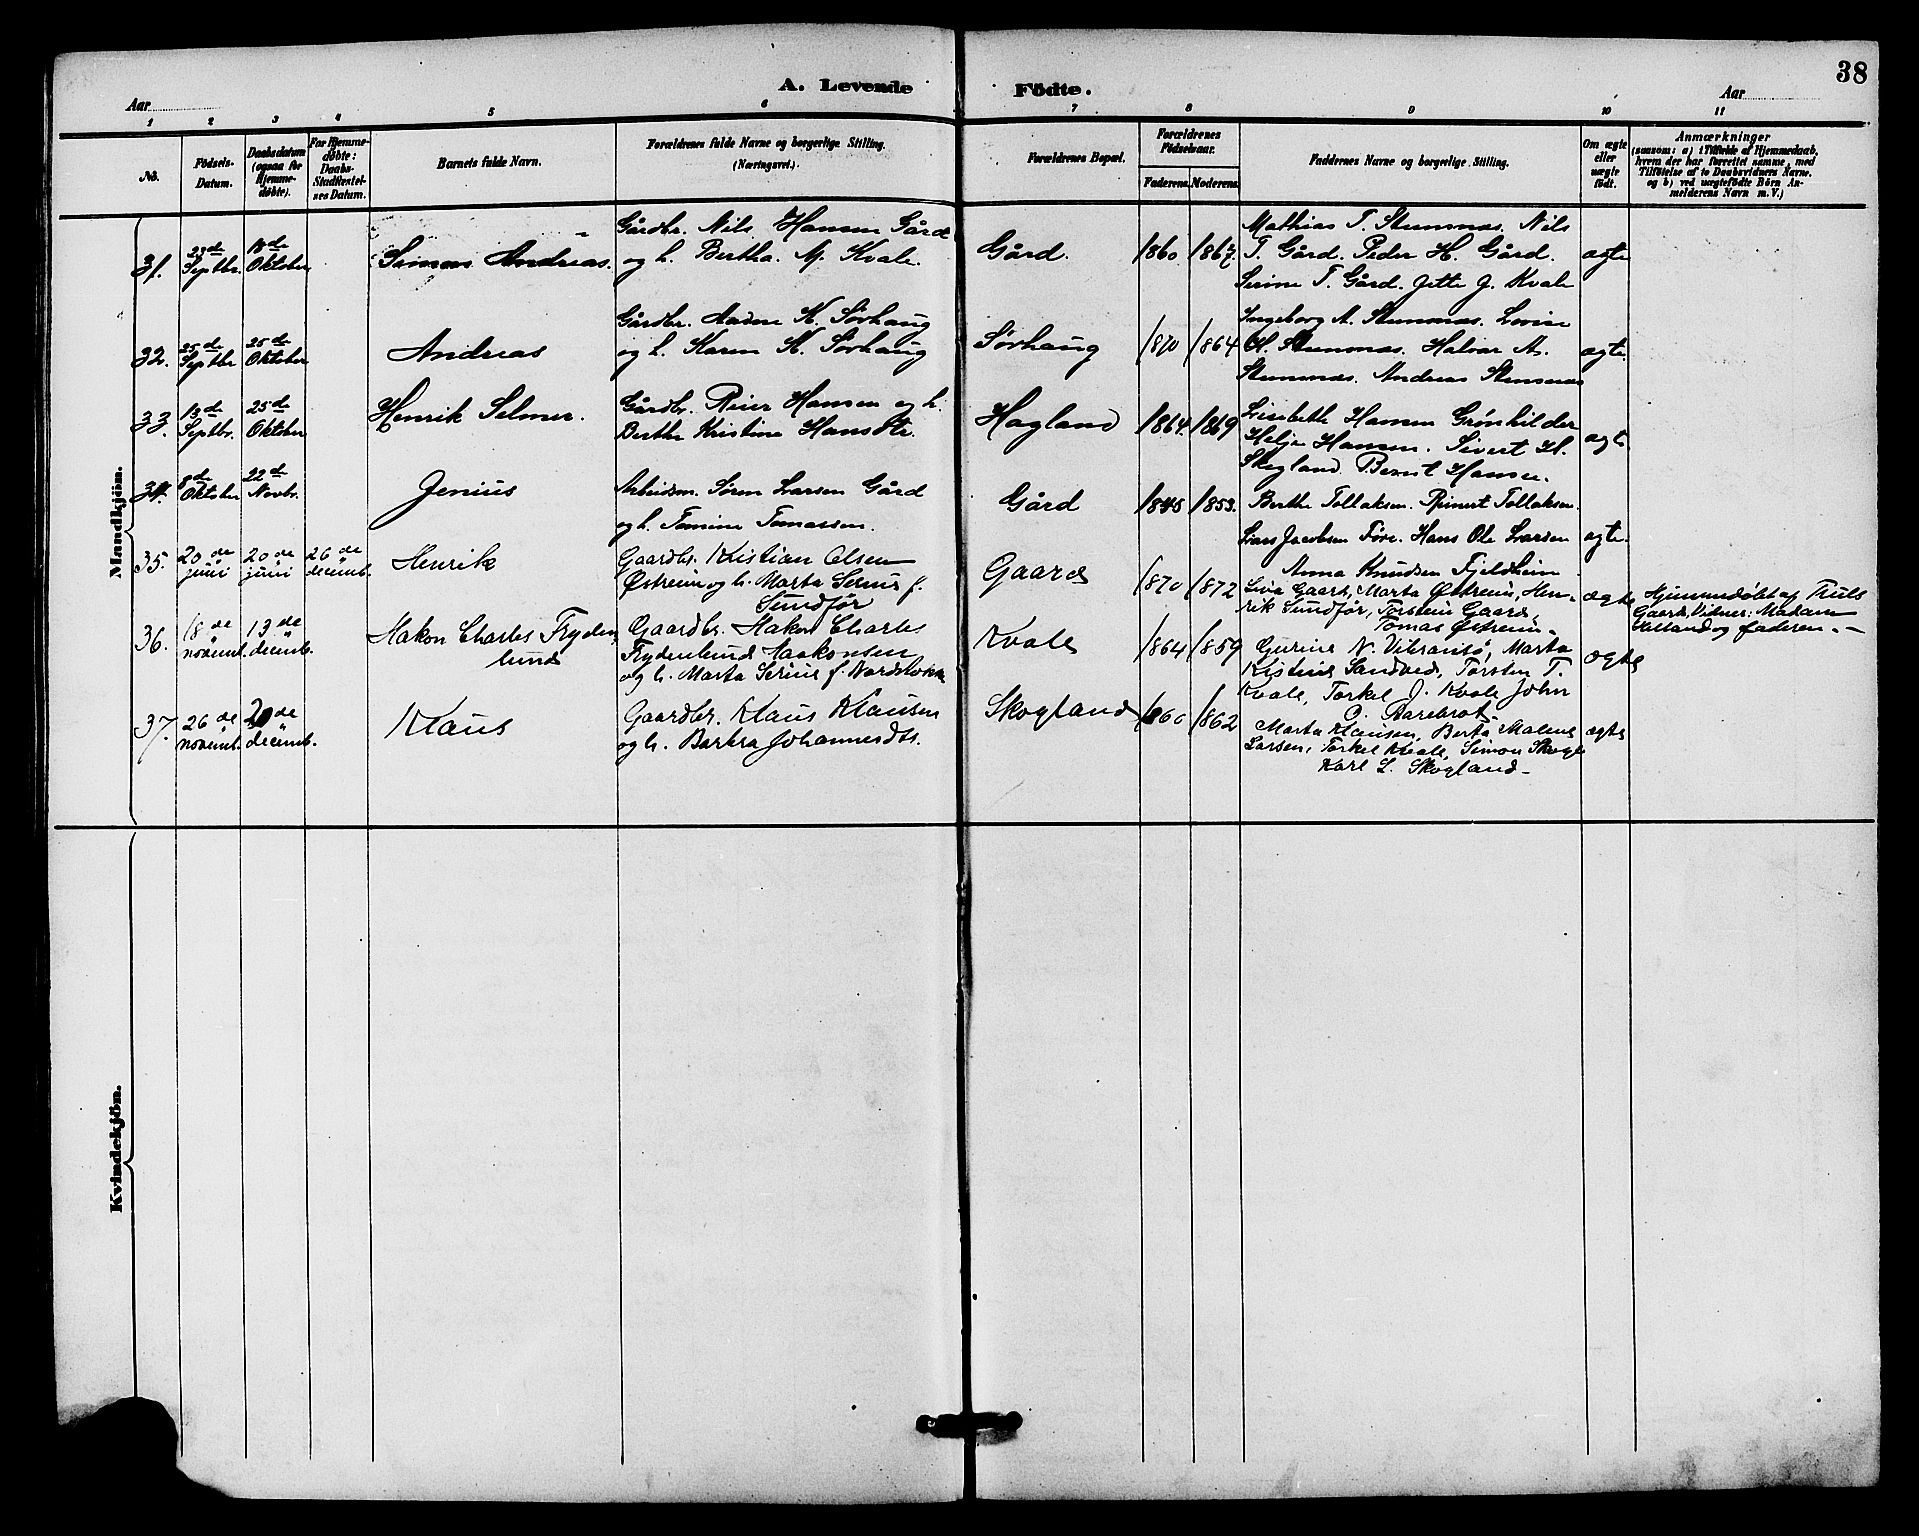 38
A. Levende Födte.
Aar
Aar
1 2 3 4 5 6 7 8 9 10 11
No.
Födsels-
Datum.
Daabsdatum
(ogsaa for
Hjemme-
døbte).
For Hjemme-
døbte:
Daabs-
Stadfæstel-
ses Datum.
Barnets fulde Navn.
Forældrenes fulde Navne og borgerlige Stilling.
(Næringsvei.)
Forældrenes Bopæl.
Forældrenes
Födselsaar.
Faderens. Moderens.
Faddernes Navne og borgerlige Stilling.
Om ægte
eller
uægte
födt.
Anmærkninger
(saasom: a) i Tilfælde af Hjemmedaab,
hvem der har forrettet samme, med
Tilføielse af to Daabsvidners Navne,
og b) ved uægtefödte Börn An-
melderens Navn m. V.)
Mandkjön.
31.
Septbr.
Oktober
Simon Andreas.
Gårdbr. Nils Hansen Gård
og h. Bertha M. Kvale
Gård.
1860. 1867.
Mathias T. Stumnæs. Nils
T. Gård. Peder H. Gård.
Serine T. Gård. Jette J. Kvale
ægte
32.
25de
Septbr
25de
Oktober
Andreas
Gårdbr. Aadne K. Sørhaug
og h. Karen K. Sørhaug
Sørhaug
1870 1864
Ingeborg A. Stumnæs. Lovise
H. Stumnæs. Halvar A.
Stumnæs. Andreas Stumnæs
ægte.
33.
13de
Septbr.
25de
Oktober
Henrik Selmer.
Gårdbr. Reier Hansen og h.
Berthe Kristine Hansdtr.
Hagland
1864. 1869
Lisebeth Hansen Grønhilder
Helje Hansen. Sivert H.
Skogland Bernt Hansen.
ægt
34.
8de
Oktober
22de
Novbr.
Jenius
Arbeidsm. Sören Larsen Gård
og h. Tomine Tomassen.
Gård
1845 1853.
Berthe Tollaksen. Reinert Tollaksen.
Lars Jacobsen Føre. Hans Ole Larsen
ægte.
35.
20de
juni
20de
juni
26de
decemb.
Henrik
Gaardbr. Kristian Olsen
Østreim og h. Marta Serine f.
Sundför
Gaard
1870 1872
Anna Knudsen Fjeldheim
Liva Gaard, Marta Østreim, Hen-
rik Sundför, Torstein Gaard,
Tomas Østreim.
ægte
Hjemmedøbt af Truls
Gaard, Vidner: Madam
Valland og faderen.
36.
18de
novemb.
13de
decemb.
Hakon Charles Fryden
lund
Gaardbr. Hakon Charles
Frydenlund Haakonsen
og h. Marta Serine f. Nordstokke
Kvale
1864 1859
Gurine N. Vibransö, Marta
Kistine Sandved, Torsten T.
Kvale, Torkel J. Kvale John
O. Aarebrot.
ægte
37.
26de
novemb.
20de
decemb.
Klaus
Gaardbr. Klaus Klausen
og h. Barbra Johannesdt.
Skogland
1860 1862
Marta Klausen, Berta Malene
Larsen, Torkel Kvale, Simon Skogl
Karl L. Skogland.
ægte
Kvindekjön.